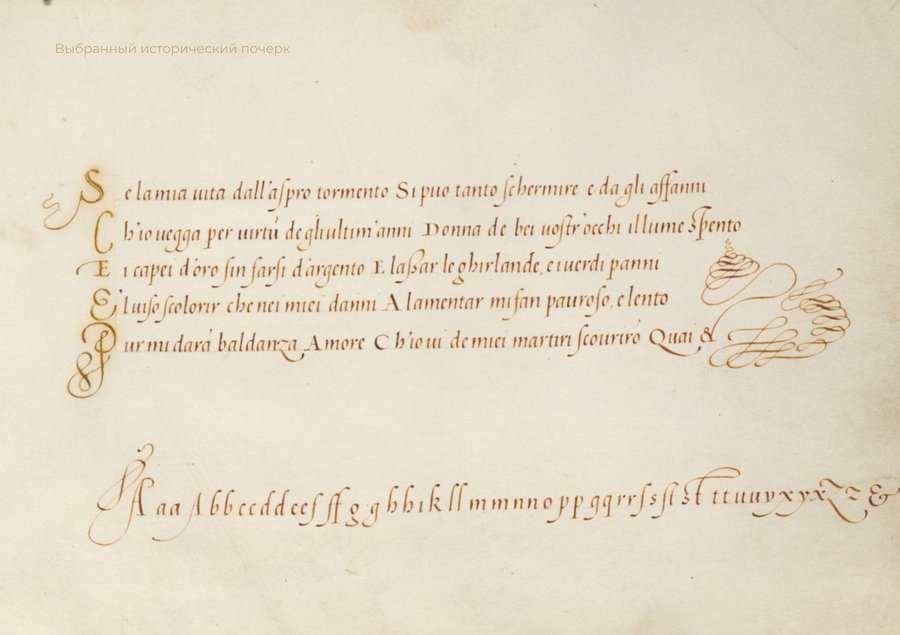 Выбранный исторический почерк
Se la mia uita dall'aſpro tormento Si puo tanto ſchermire e da gli affanni
Ch'io uegga per uirtú de gliultim'anni Donna de bei uoſtr'occhi il lume spento
E i capei d'oro fin farſi d'argento E laſſar le ghirlande, e i uerdi panni
E'l uiſo ſcolorir che nei miei danni A lamentar mi fan pauroſo, e lento
Pur mi dará baldanza Amore Ch'io ui de miei martiri ſcouriró Quai &
A a a A b b c c d d e e f ff g g h h i k l l m m n n o p p q q r r ſ s s ſt st t t u u y x y x z z &